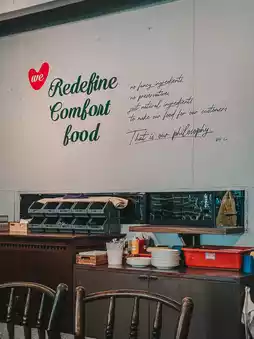 we
Redefine
Comfort
food
no fancy ingredients
no preservative,
just natural ingredients
to make our food for our customers
That is our philosophy.